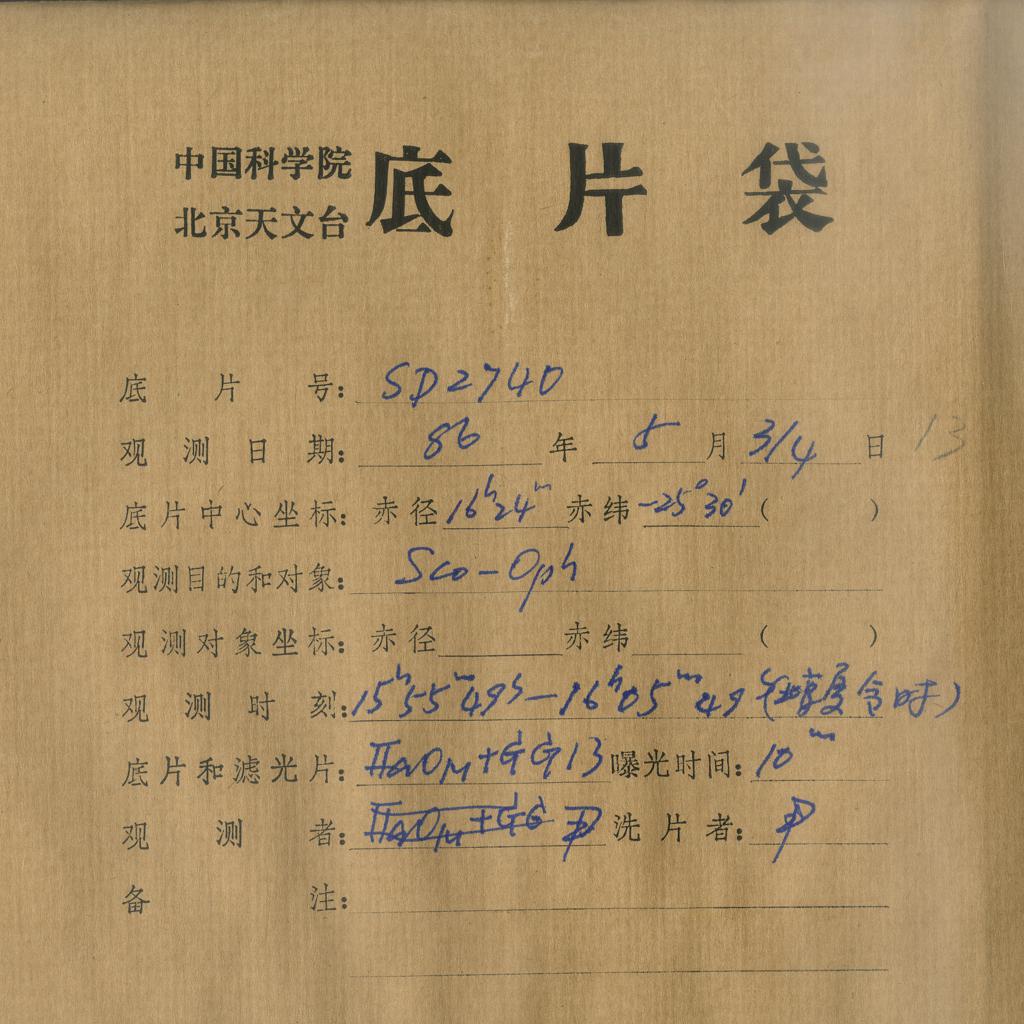 中国科学院
北京天文台
底片袋
底片号: SD2740
观测日期: 86 年 5 月 3/4 日 13
底片中心坐标: 赤径 16h24m 赤纬 -25°30′ ( )
观测目的和对象: Sco-Oph
观测对象坐标: 赤径 赤纬 ( )
观测时刻: 15h55m49s-16h05m49 (夏令时)
底片和滤光片: IIaOM+GG13 曝光时间: 10m
观测者: IIaOM+GG 洗片者:
备注: